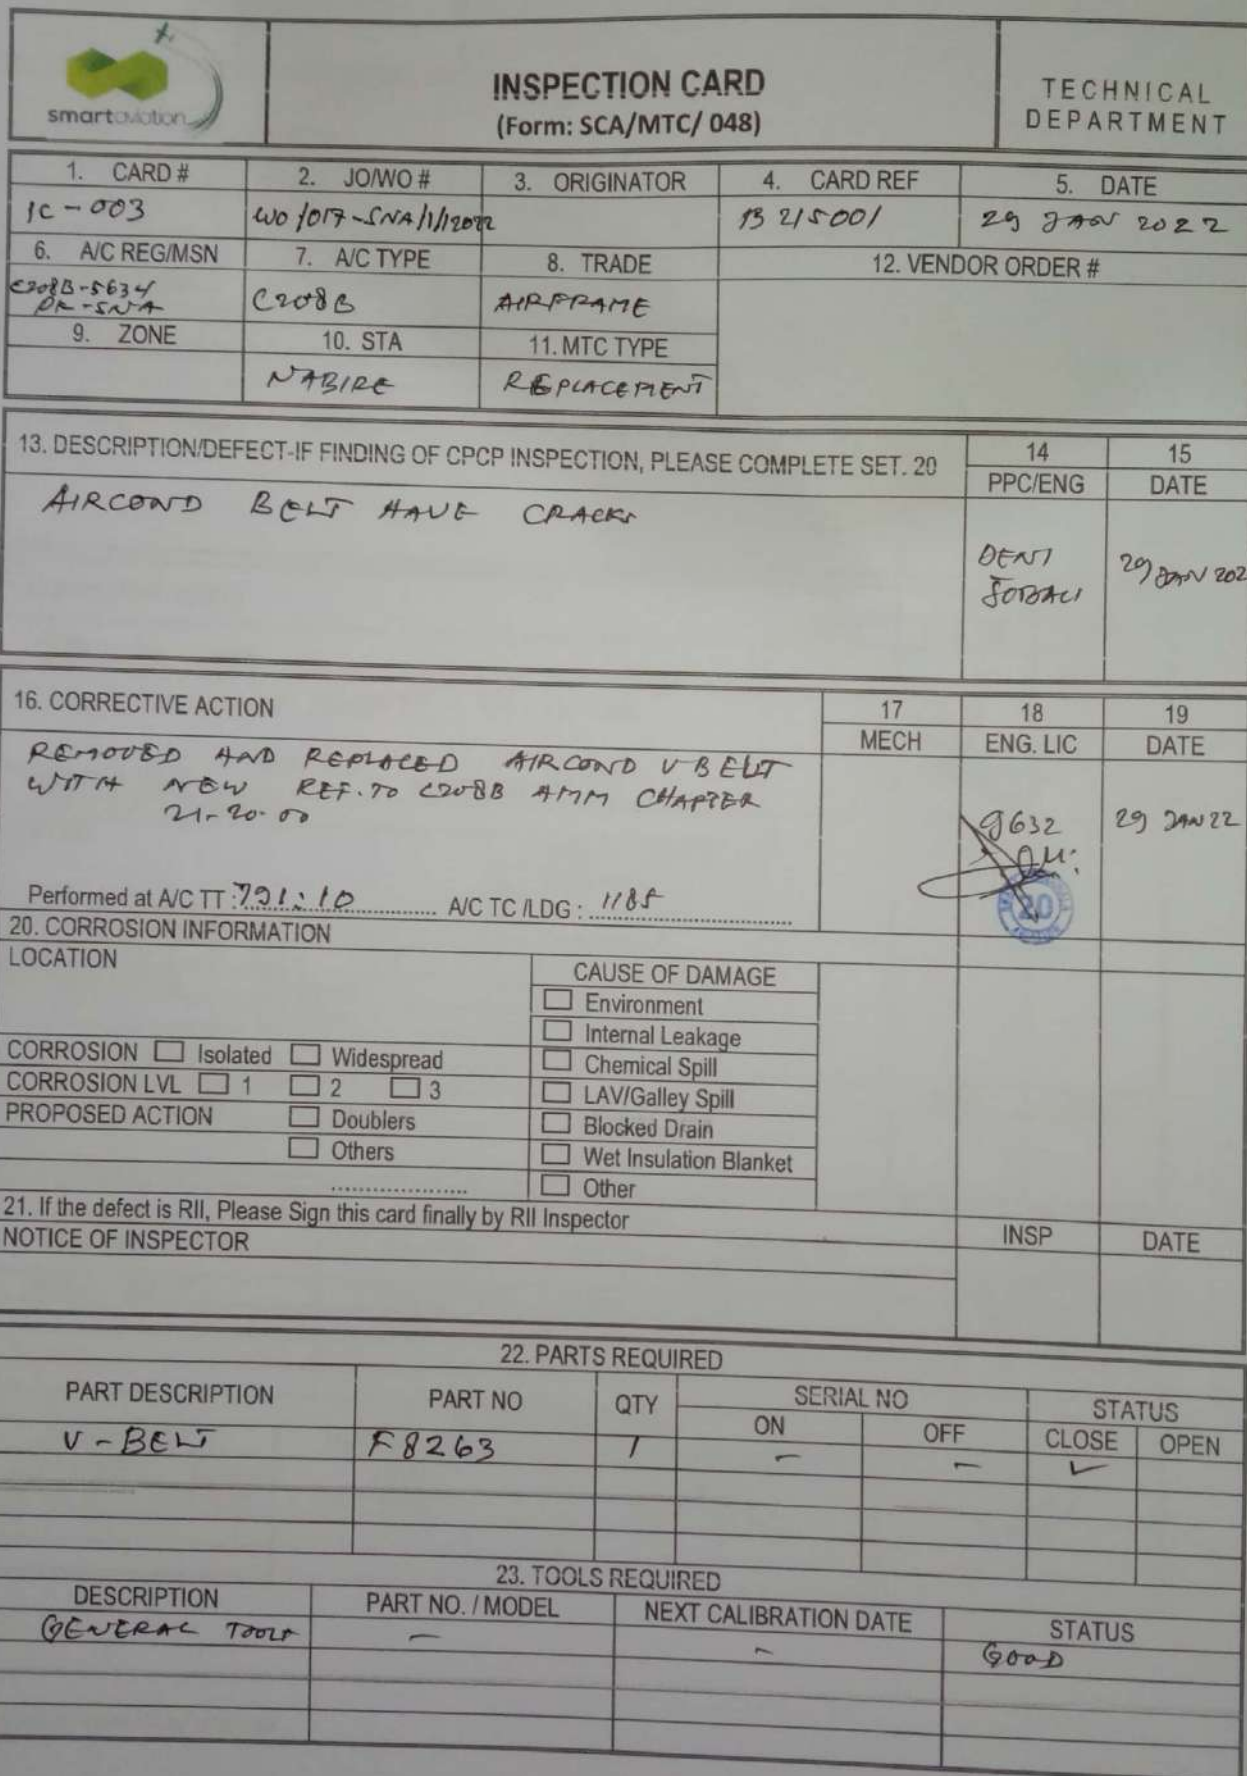 smartaviation
INSPECTION CARD
(Form: SCA/MTC/ 048)
TECHNICAL
DEPARTMENT
1. CARD #
2. JO/WO #
3. ORIGINATOR
4. CARD REF
5. DATE
IC-003
WO/017-SNA/1/2022
B 215001
29 JAN 2022
6. A/C REG/MSN
7. A/C TYPE
8. TRADE
12. VENDOR ORDER #
C208B-5634
PK-SNA
C208B
AIRFRAME
9. ZONE
10. STA
11. MTC TYPE
NABIRE
REPLACEMENT
13. DESCRIPTION/DEFECT-IF FINDING OF CPCP INSPECTION, PLEASE COMPLETE SET. 20
14
15
PPC/ENG
DATE
AIRCOND BELT HAVE CRACKS
DENI
29 JAN 202
16. CORRECTIVE ACTION
17
18
19
MECH
ENG. LIC
DATE
REMOVED AND REPLACED AIRCOND V BELT
WITH NEW REF. TO C208B AMM CHAPTER
21-20-00
9632
29 JAN 22
20
Performed at A/C TT : 791:10 A/C TC /LDG : 1185
20. CORROSION INFORMATION
LOCATION
CAUSE OF DAMAGE
Environment
Internal Leakage
CORROSION Isolated Widespread
Chemical Spill
CORROSION LVL 1 2 3
LAV/Galley Spill
PROPOSED ACTION Doublers
Blocked Drain
Others
Wet Insulation Blanket
....................
Other
21. If the defect is RII, Please Sign this card finally by RII Inspector
NOTICE OF INSPECTOR
INSP
DATE
22. PARTS REQUIRED
PART DESCRIPTION
PART NO
QTY
SERIAL NO
STATUS
ON
OFF
CLOSE
OPEN
V-BELT
F8263
1
-
-
✓
23. TOOLS REQUIRED
DESCRIPTION
PART NO. / MODEL
NEXT CALIBRATION DATE
STATUS
GENERAL TOOLS
-
-
GOOD